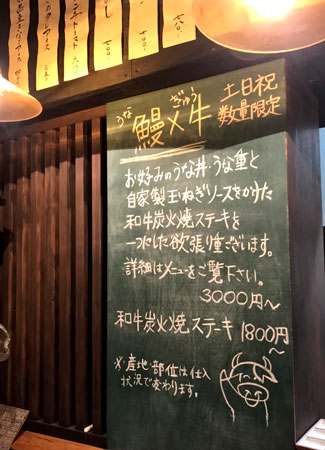 うな ぎゅう
鰻×牛
土日祝
数量限定
お好みのうな丼・うな重と
自家製玉ねぎソースをかけた
和牛炭火焼ステーキを
一つにした欲張り重ございます。
詳細はメニューをご覧下さい。
3000円～
和牛炭火焼ステーキ 1800円～
※産地・部位は仕入
状況で変わります。